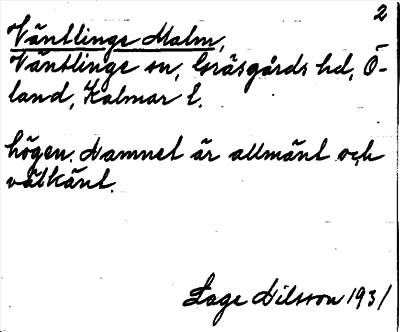 2
Väntlinge Malm,
Väntlinge sn, Gräsgårds hd, Ö-
land, Kalmar l.
högen. Namnet är allmänt och
välkänt.
Sage Nilsson 1931